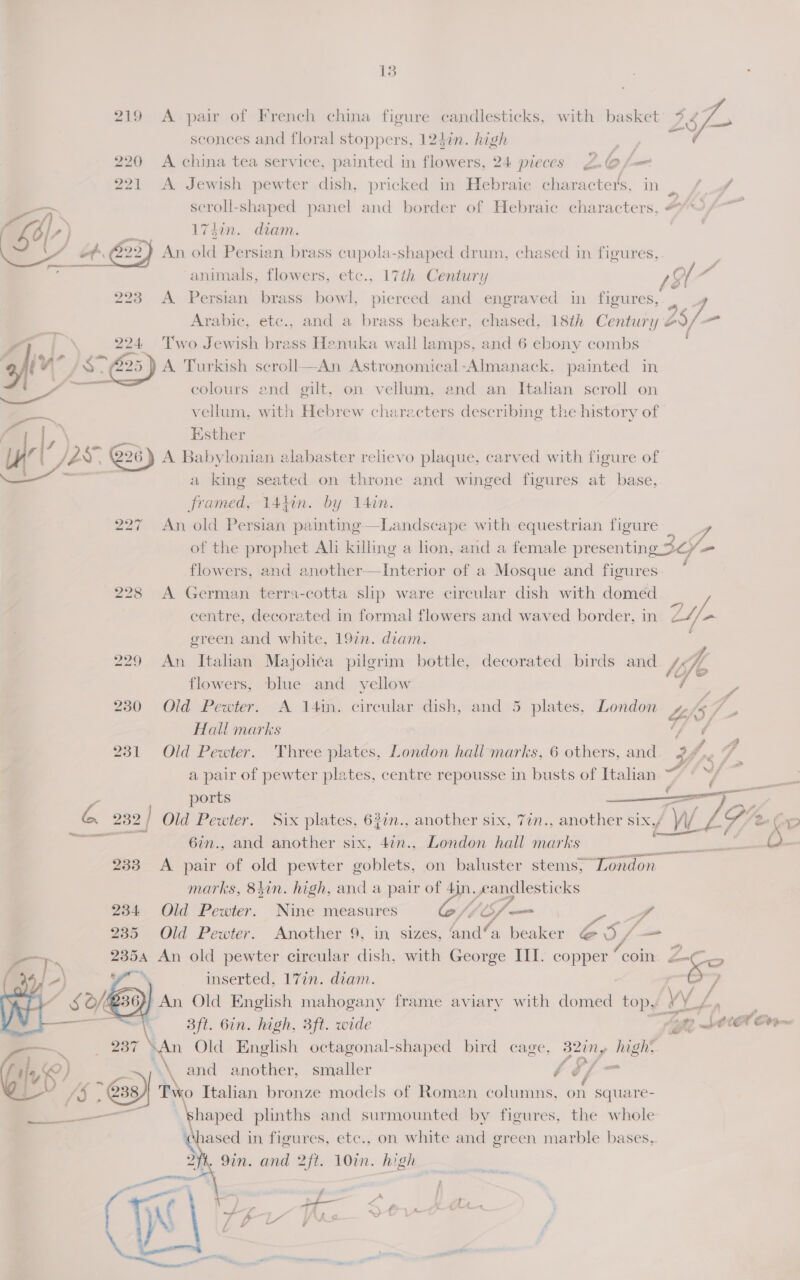 13
219 A pair of French china figure candlesticks, with basket
sconces and floral stoppers, 12½in. high
220 A china tea service, painted in flowers, 24 pieces
221 A Jewish pewter dish, pricked in Hebraic characters, in
scroll-shaped panel and border of Hebraic characters,
17½in. diam.
222 An old Persian brass cupola-shaped drum, chased in figures,
animals, flowers, etc., 17th Century
223 A Persian brass bowl, pierced and engraved in figures,
Arabic, etc., and a brass beaker, chased, 18th Century
224 Two Jewish brass Henuka wall lamps, and 6 ebony combs
225 A Turkish scroll—An Astronomical-Almanack, painted in
colours and gilt, on vellum, and an Italian scroll on
vellum, with Hebrew characters describing the history of
Esther
226 A Babylonian alabaster relievo plaque, carved with figure of
a king seated on throne and winged figures at base,
framed, 14½in. by 14in.
227 An old Persian painting—Landscape with equestrian figure
of the prophet Ali killing a lion, and a female presenting
flowers, and another—Interior of a Mosque and figures
228 A German terra-cotta slip ware circular dish with domed
centre, decorated in formal flowers and waved border, in
green and white, 19in. diam.
229 An Italian Majolica pilgrim bottle, decorated birds and
flowers, blue and yellow
230 Old Pewter. A 14in. circular dish, and 5 plates, London
Hall marks
231 Old Pewter. Three plates, London hall marks, 6 others, and
a pair of pewter plates, centre repousse in busts of Italian
ports
232 Old Pewter. Six plates, 6¾in., another six, 7in., another six,
6in., and another six, 4in., London hall marks
233 A pair of old pewter goblets, on baluster stems, London
marks, 8½in. high, and a pair of 4in. candlesticks
234 Old Pewter. Nine measures
235 Old Pewter. Another 9, in sizes, and a beaker
235A An old pewter circular dish, with George III. copper coin
inserted, 17in. diam.
236 An Old English mahogany frame aviary with domed top,
3ft. 6in. high, 3ft. wide
237 An Old English octagonal-shaped bird cage, 32in. high
and another, smaller
238 Two Italian bronze models of Roman columns, on square-
shaped plinths and surmounted by figures, the whole
chased in figures, etc., on white and green marble bases,
2ft. 9in. and 2ft. 10in. high